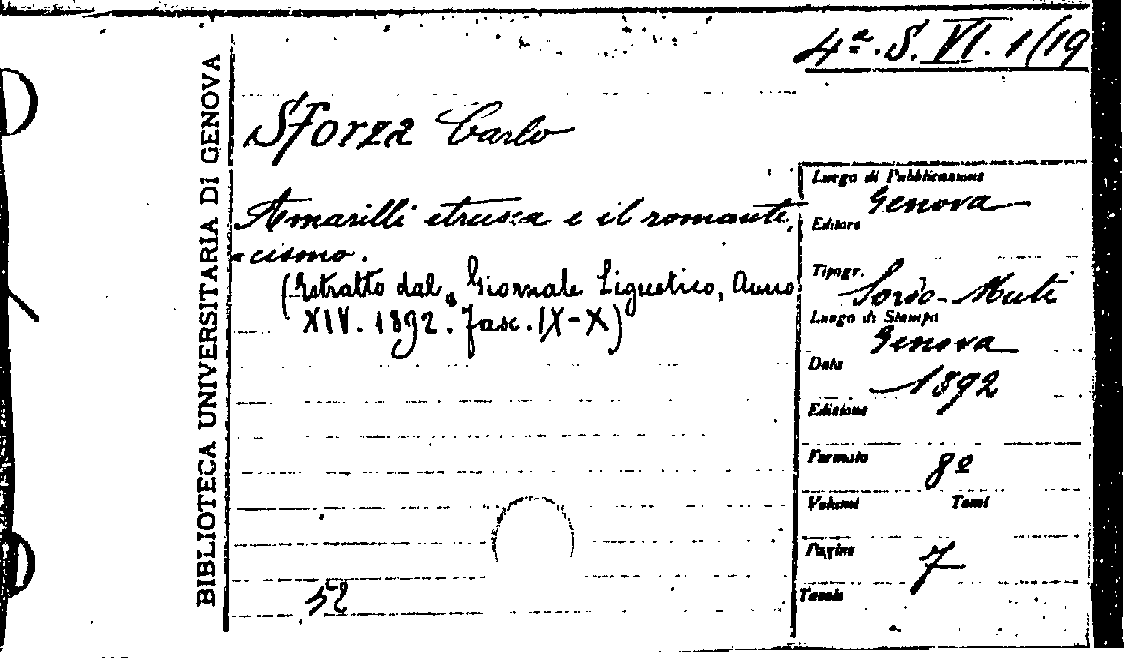 4ª. S. VI. 1/19
BIBLIOTECA UNIVERSITARIA DI GENOVA
Sforza Carlo
Amarilli etrusca e il romanti-
-cismo.
(Estratto dal, Giornale Ligustico, Anno
XIV. 1892. Fasc. IX-X)
52
Luogo di Pubblicazione
Genova
Editore
Tipogr.
Sordo-Muti
Luogo di Stampa
Genova
Data
1892
Edizione
Formato 8º
Volumi Tomi
Pagine 7
Tavole